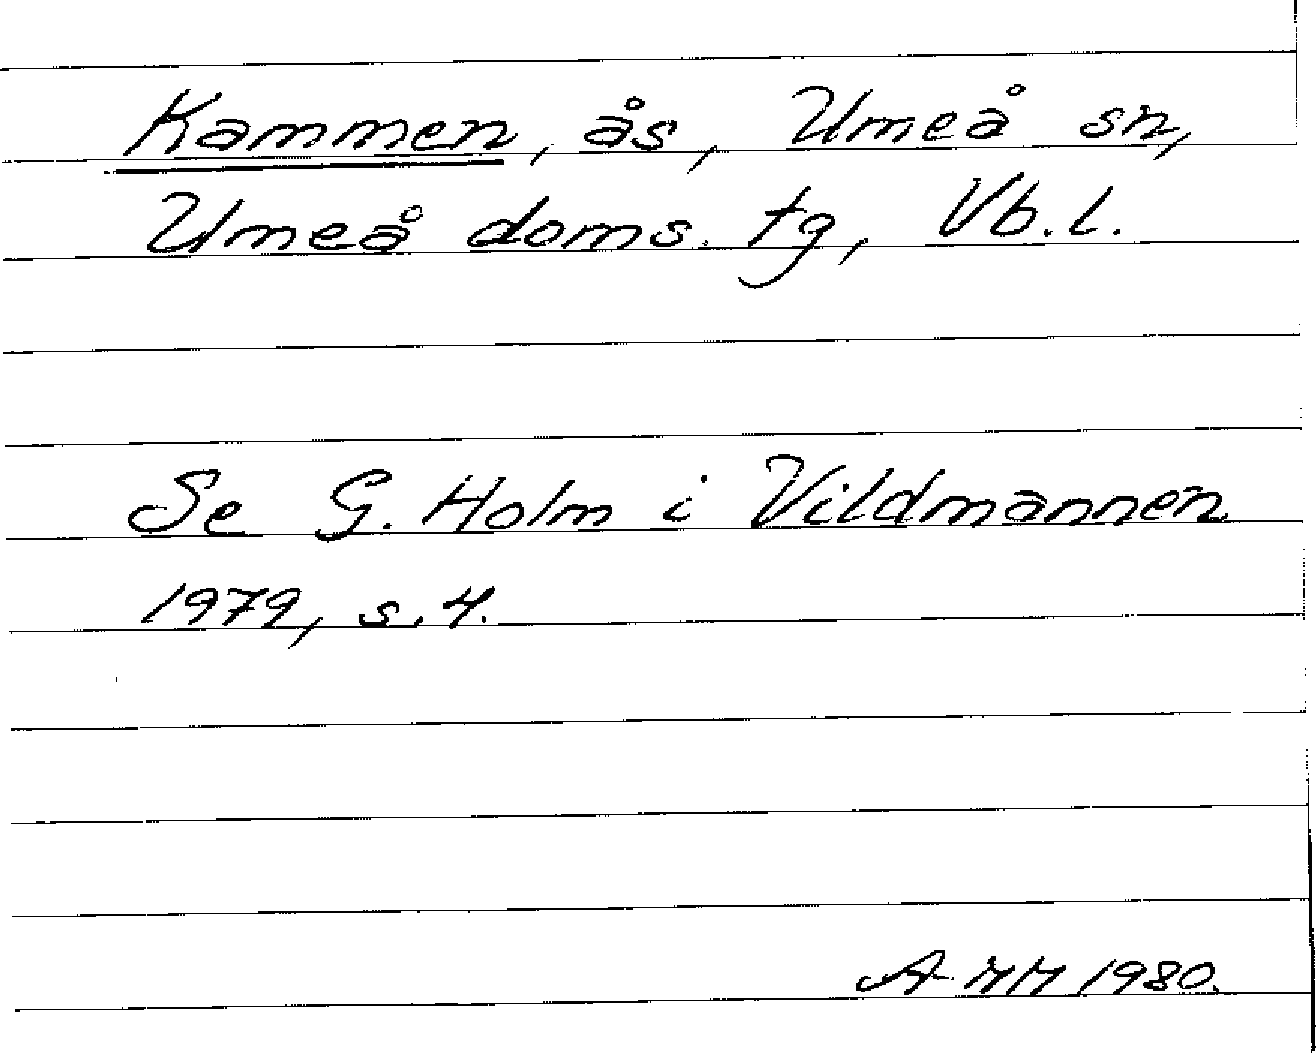 Kammen, ås, Umeå sn,
Umeå doms. tg, Vb.l.
Se G. Holm i Vildmannen
1979, s. 4.
A-MM 1980.